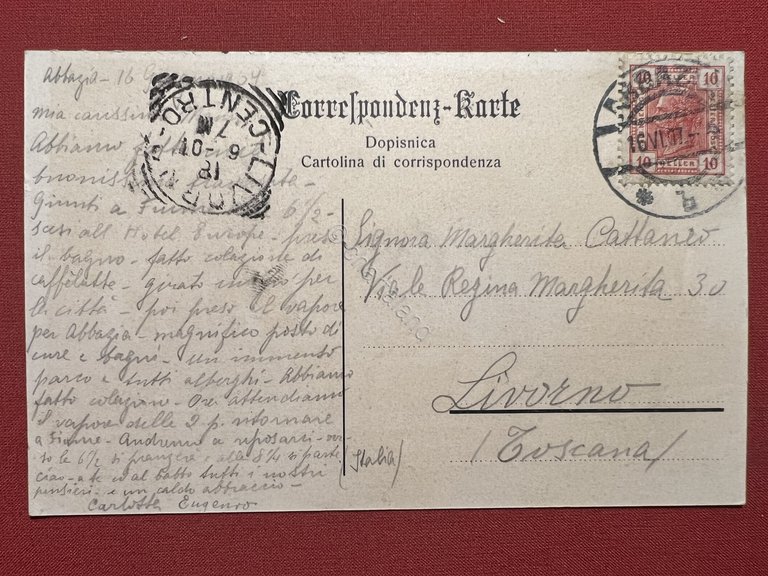 Abbazia - 16
Correspondenz-Karte
Dopisnica
Cartolina di corrispondenza
10 10
HELLER
10 10
16 VI 07
LIVORNO
CENTRO
18
6-07
7M
mia carissima
Abbiamo fatto
buonissimo
Giunti a Fiume 6½ -
scesi all Hotel Europe - preso
il bagno - fatto colazione di
caffelatte - girato per
la città - poi preso il vapore
per Abbazia - magnifico posto di
cure e bagni - un immenso
parco e tutti alberghi - Abbiamo
fatto colazione - Ora attendiamo
il vapore delle 2 p. ritornare
a Fiume - Andremo a riposarci - ver-
so le 6½ si pranzerà e alla 8¼ si parte
ciao - a te ed al babbo tutti i nostri
pensieri e un caldo abbraccio -
Carlotta Eugenio
Signora Margherita Cattaneo
Viale Regina Margherita 30
Livorno
(Toscana)
(Italia)